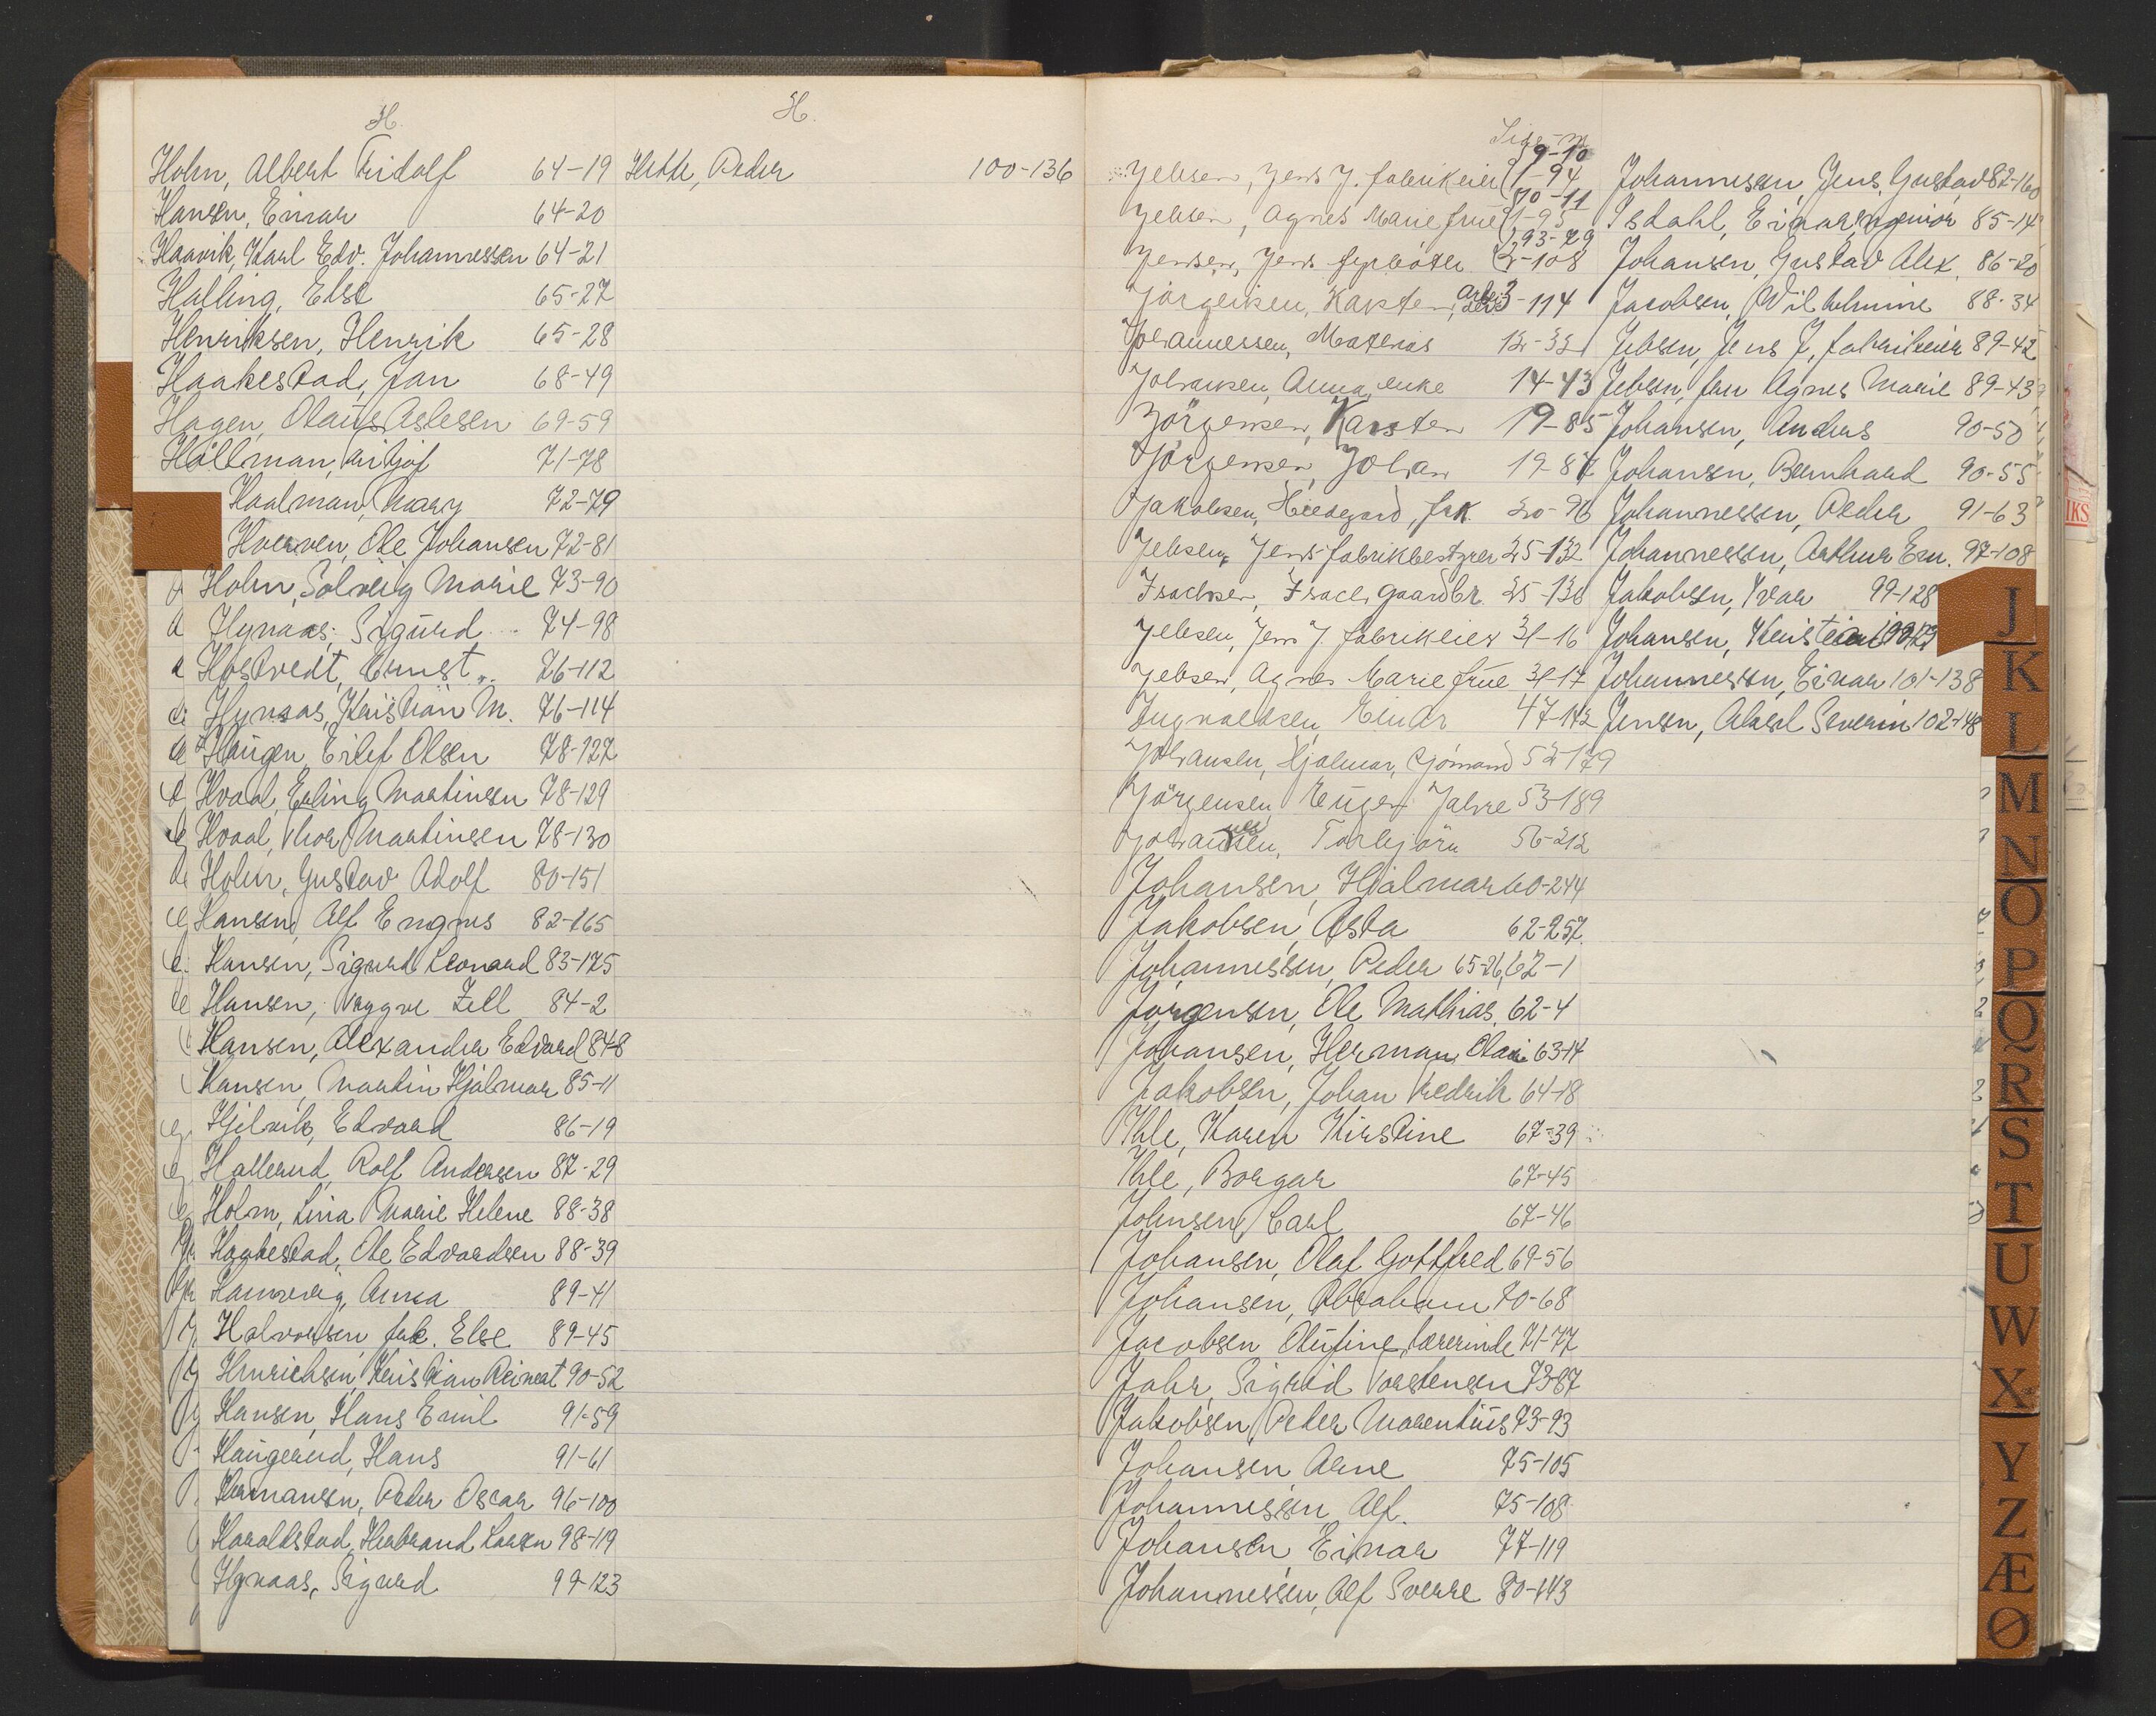 H.
Holm, Albert Fridolf 64-19
Hansen, Einar 64-20
Haavik, Karl Edv. Johannessen 64-21
Halling, Else 65-27
Henriksen, Henrik 65-28
Haakestad, Jan 68-49
Hagen, Olaüs Aslesen 69-59
Hallman, 71-78
Haalman, Mary 72-79
Hverven, Ole Johansen 72-81
Holm, Solveig Marie 73-90
Hynaas, Sigurd 74-98
Hostvedt, Ernst 76-112
Hynaas, Kristian M. 76-114
Haugen, Eilef Olsen 78-127
Hvaal, Erling Martinsen 78-129
Hvaal, Thor Martinsen 78-130
Holm, Gustav Adolf 80-151
Hansen, Alf Magnus 82-165
Hansen, Sigurd Leonard 83-175
Hansen, Trygve Zell 84-2
Hansen, Alexander Edvard 84-8
Hansen, Martin Hjalmar 85-11
Hjelvik, Edvard 86-19
Hallerud, Rolf Andersen 87-29
Holm, Lina Marie Helene 88-38
Haakestad, Ole Edvardsen 88-39
Hamre, Anna 89-41
Halvorsen, frk. Else 89-45
Henrichsen, Kristian Reinert 90-52
Hansen, Hans Emil 91-59
Haugerud, Hans 91-61
Hermansen, Peder Oscar 96-100
Haraldstad, Herbrand Larsen 98-119
Hynaas, Sigurd 99-123
H.
Hette, Peder 100-136
9-10
Jebsen, Jens J. fabrikeier 1-94
70-11
Jebsen, Agnes Marie früe 1-95
93-79
Jensen, Jens fyrbøter 2-108
Jörgensen, Karsten, 3-114
Johannessen, Mathias 12-32
Johansen, Anna, enke 14-43
Jörgensen, Karsten 19-85
Jörgensen, Johan 19-87
Jakobsen, Hildegard, frk. 20-96
Jebsen, Jens fabrikbestyrer 25-132
Isachsen, Isach gaardbr. 25-136
Jebsen, Jens J. fabrikeier 31-16
Jebsen, Agnes Marie früe 31-17
Ingvaldsen, Einar 47-142
Johansen, Hjalmar, sjømand 52-179
Jörgensen, Eugen Jahre 53-189
Torbjörn 56-212
Johansen, Hjalmar 60-244
Jakobsen, Asta 62-257
Johannessen, Peder 65-26, 62-1
Jørgensen, Ole Mathias 62-4
Johansen, Herman Olai 63-14
Jakobsen, Johan Fredrik 64-18
Ihle, Karen Kirstine 67-39
Ihle, Borgar 67-45
Johnsen, Carl 67-46
Johansen, Olaf Gottfred 69-56
Johansen, Abraham 70-68
Jacobsen Olufine, lærerinde 71-77
Jahr, Sigrid Torstensen 73-87
Jakobsen, Peder Marentius 73-93
Johansen Arne 75-105
Johannessen, Alf. 75-108
Johansen, Einar 77-119
Johannessen, Alf Sverre 80-143
Johannessen, Jens Gustav 82-160
Isdahl, Einar, 85-14
Johansen, Gustav Alex. 86-20
Jacobsen, Wilhelmine 88-34
Jebsen, Jens J. fabrikeier 89-42
Jebsen, fru Agnes Marie 89-43
Johansen, Anders 90-50
Johansen, Bernhard 90-55
Johannessen, Peder 91-63
Johannessen, Arthur Em. 97-108
Jakobsen, Ivar 99-128
Johansen, Kristian
Johannessen, Einar 101-138
Jensen, Aksel Severin 102-148
IKS
J
K
L
M
N
O
P
Q
R
S
T
U
W
X
Y
Z
Æ
Ø